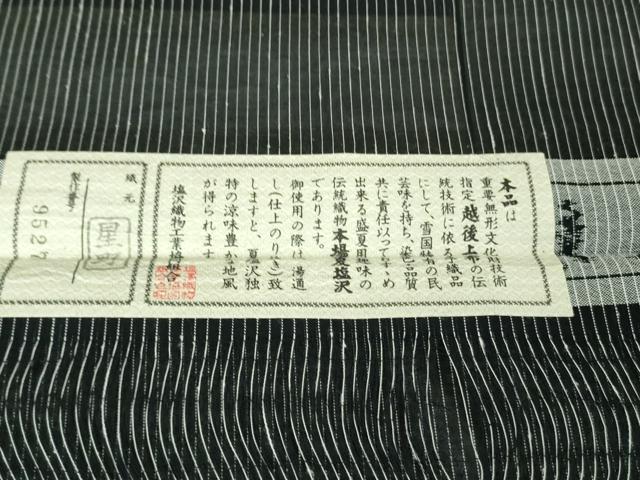 本品は
重要無形文化技術
指定越後上布の伝
統技術に依る織品
にして、雪国特有の民
芸味を持ち、染色品質
共に責任以ってすゝめ
出来る盛夏用無味の
伝統織物本場塩沢
であります。
御使用の際は湯通
し(仕上のりぬき)致
しますと、夏沢独
特の涼味豊か地風
が得られます
塩沢織物工業協組合
織元
星野
製作番号
9527